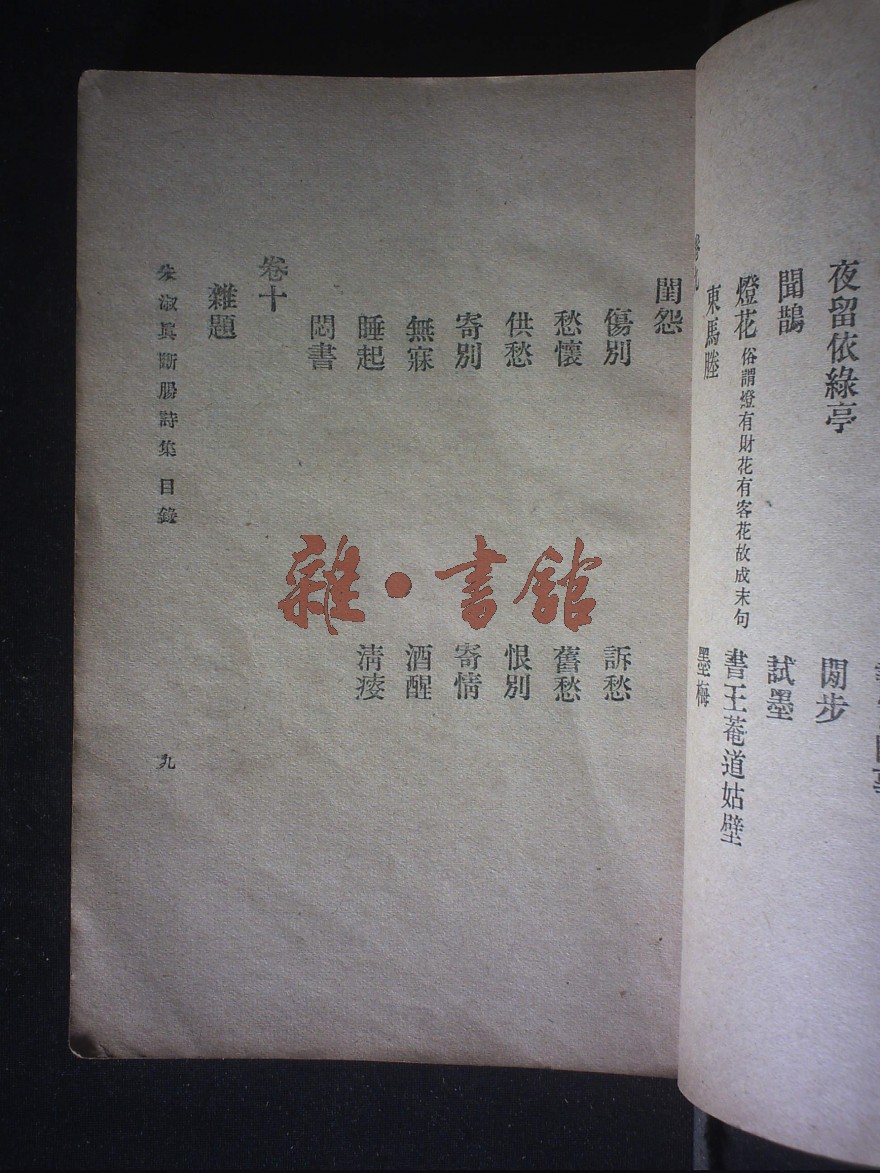 夜留依綠亭
閒步
聞鵲
試墨
燈花 俗謂燈有財花有客花故成末句
書王菴道姑壁
東馬塍
墨梅
閨怨
傷別
訴愁
愁懷
舊愁
供愁
恨別
寄別
寄情
無寐
酒醒
睡起
清瘦
悶書
卷十
雜題
朱淑眞斷腸詩集 目錄
九
雜·書館